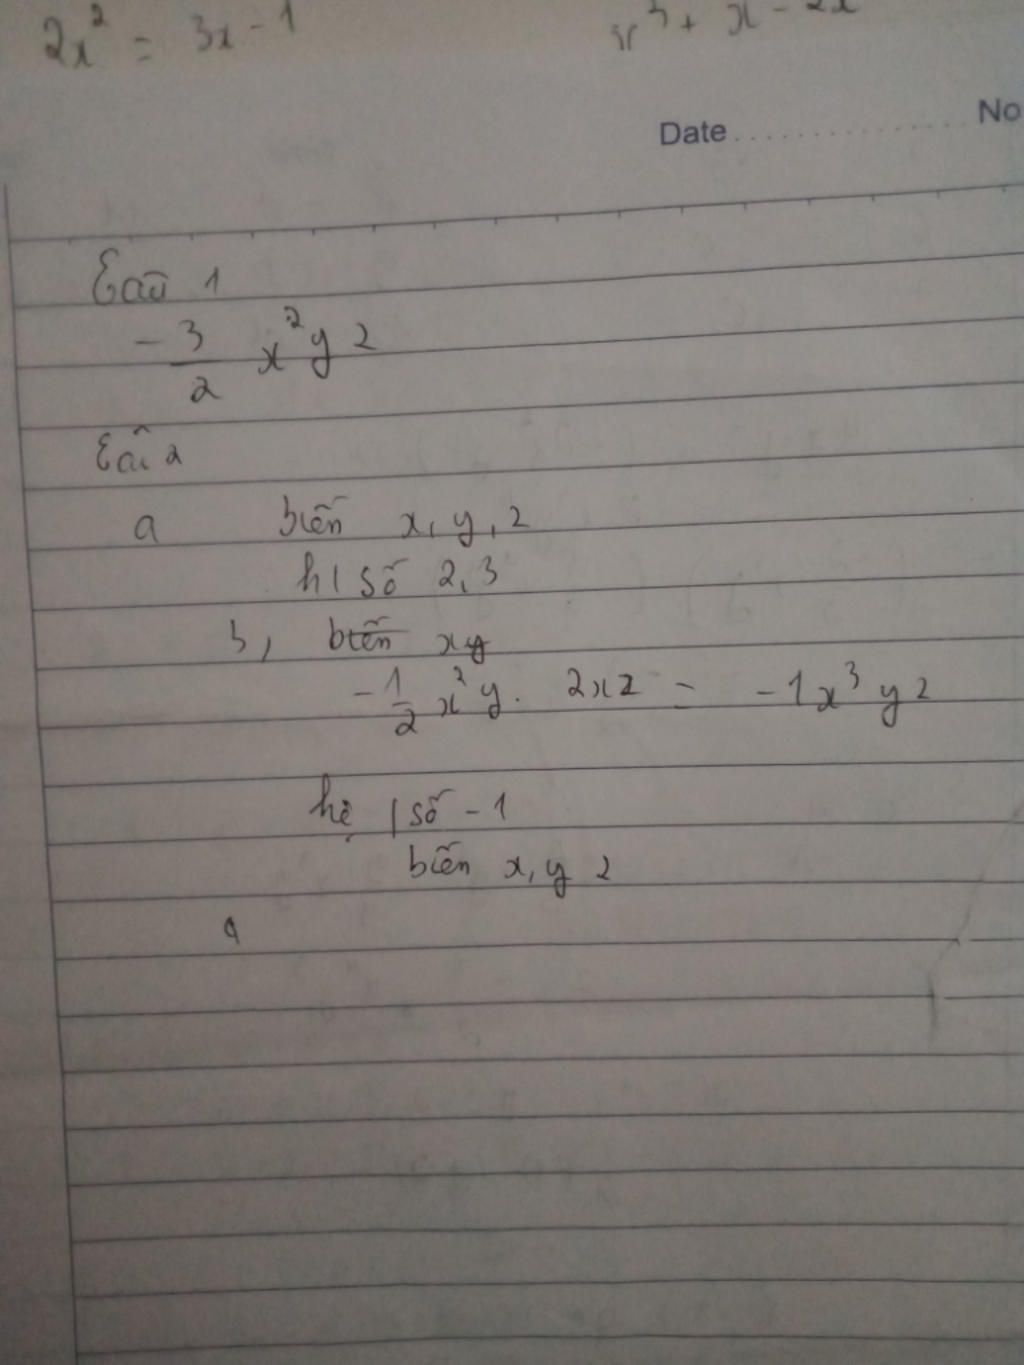 2x² = 3x - 1
Date .............. No
Câu 1
-3/2 x²y z
Câu 2
a biến x, y, z
hị số 2,3
b, biến xy
-1/2 x²y . 2xz = -1x³yz
hệ số -1
biến x, y z